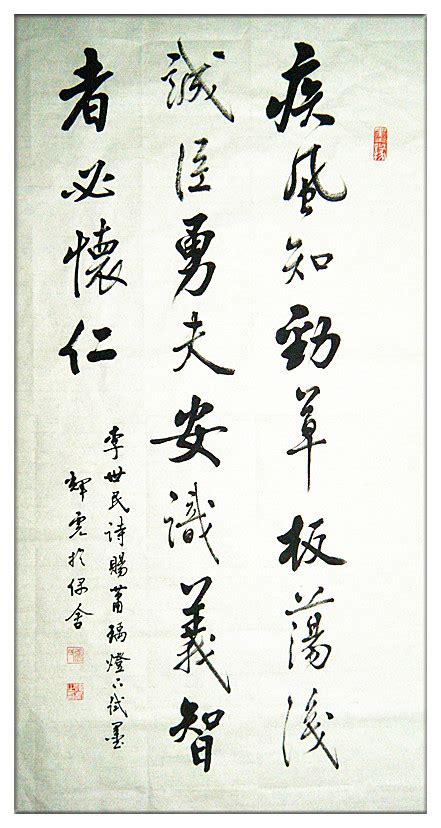 疾風知勁草板蕩識
誠臣勇夫安識義智
者必懷仁
李世民詩賜蕭瑀燈下試墨
於舍